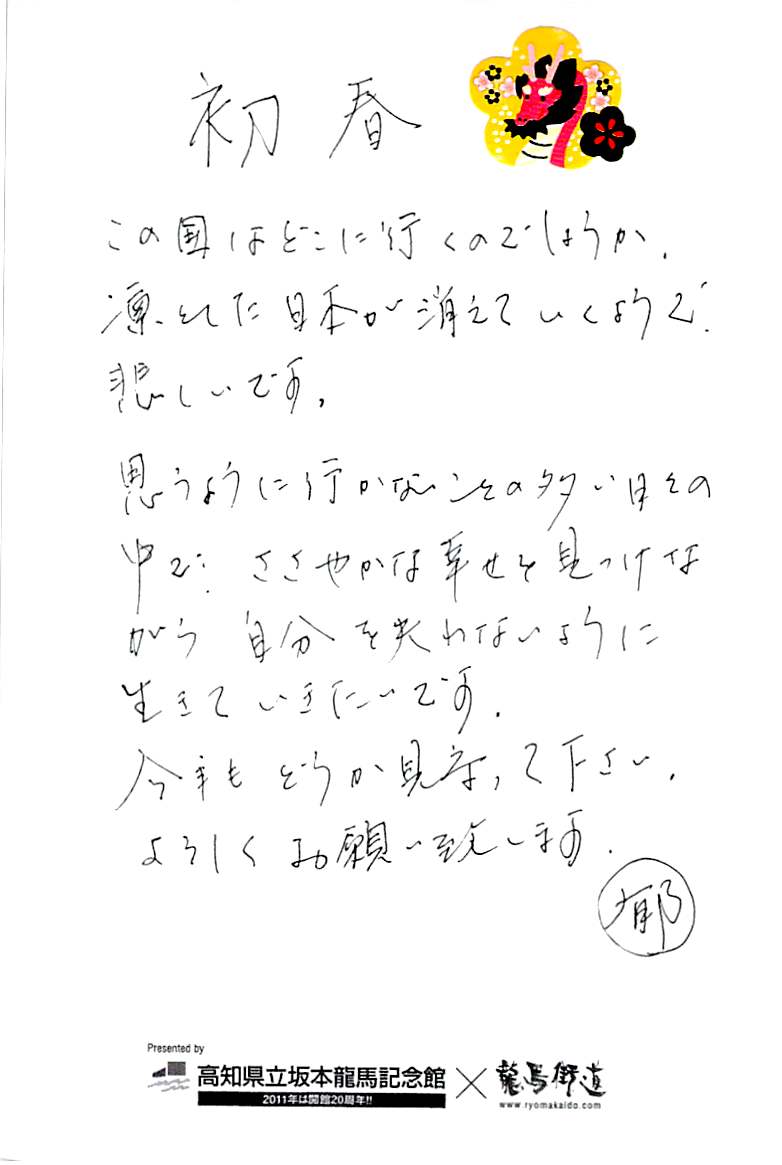 初春
この国はどこに行くのでしょうか.
凛とした日本が消えていくようで.
悲しいです.
思うように行かないことの多い日々の
中で. ささやかな幸せを見つけな
がら 自分を失わないように
生きていきたいです.
今年もどうか見守って下さい.
よろしくお願い致します.
郁
Presented by
高知県立坂本龍馬記念館×龍馬街道
2011年は開館20周年!!
www.ryomakaido.com